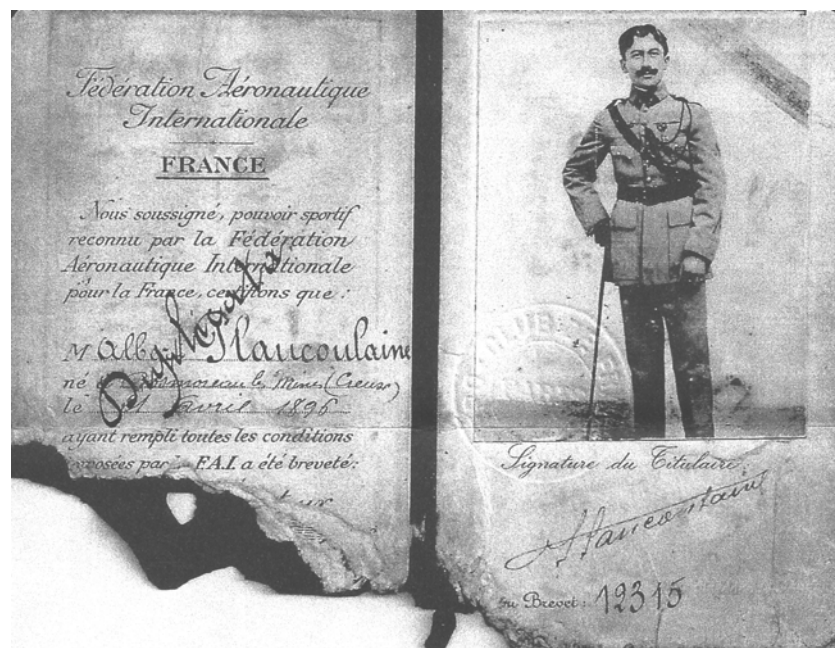 Fédération Aéronautique
Internationale
FRANCE
Nous soussigné, pouvoir sportif
reconnu par la Fédération
Aéronautique Internationale
pour la France, certifions que :
Duplicata
M Albert Flaucoulaine
né à Bosmoreau les Mines (Creuse)
le avril 1896
ayant rempli toutes les conditions
imposées par la F.A.I. a été breveté :
Signature du Titulaire
Flaucoulaine
du Brevet : 12315
CLUB